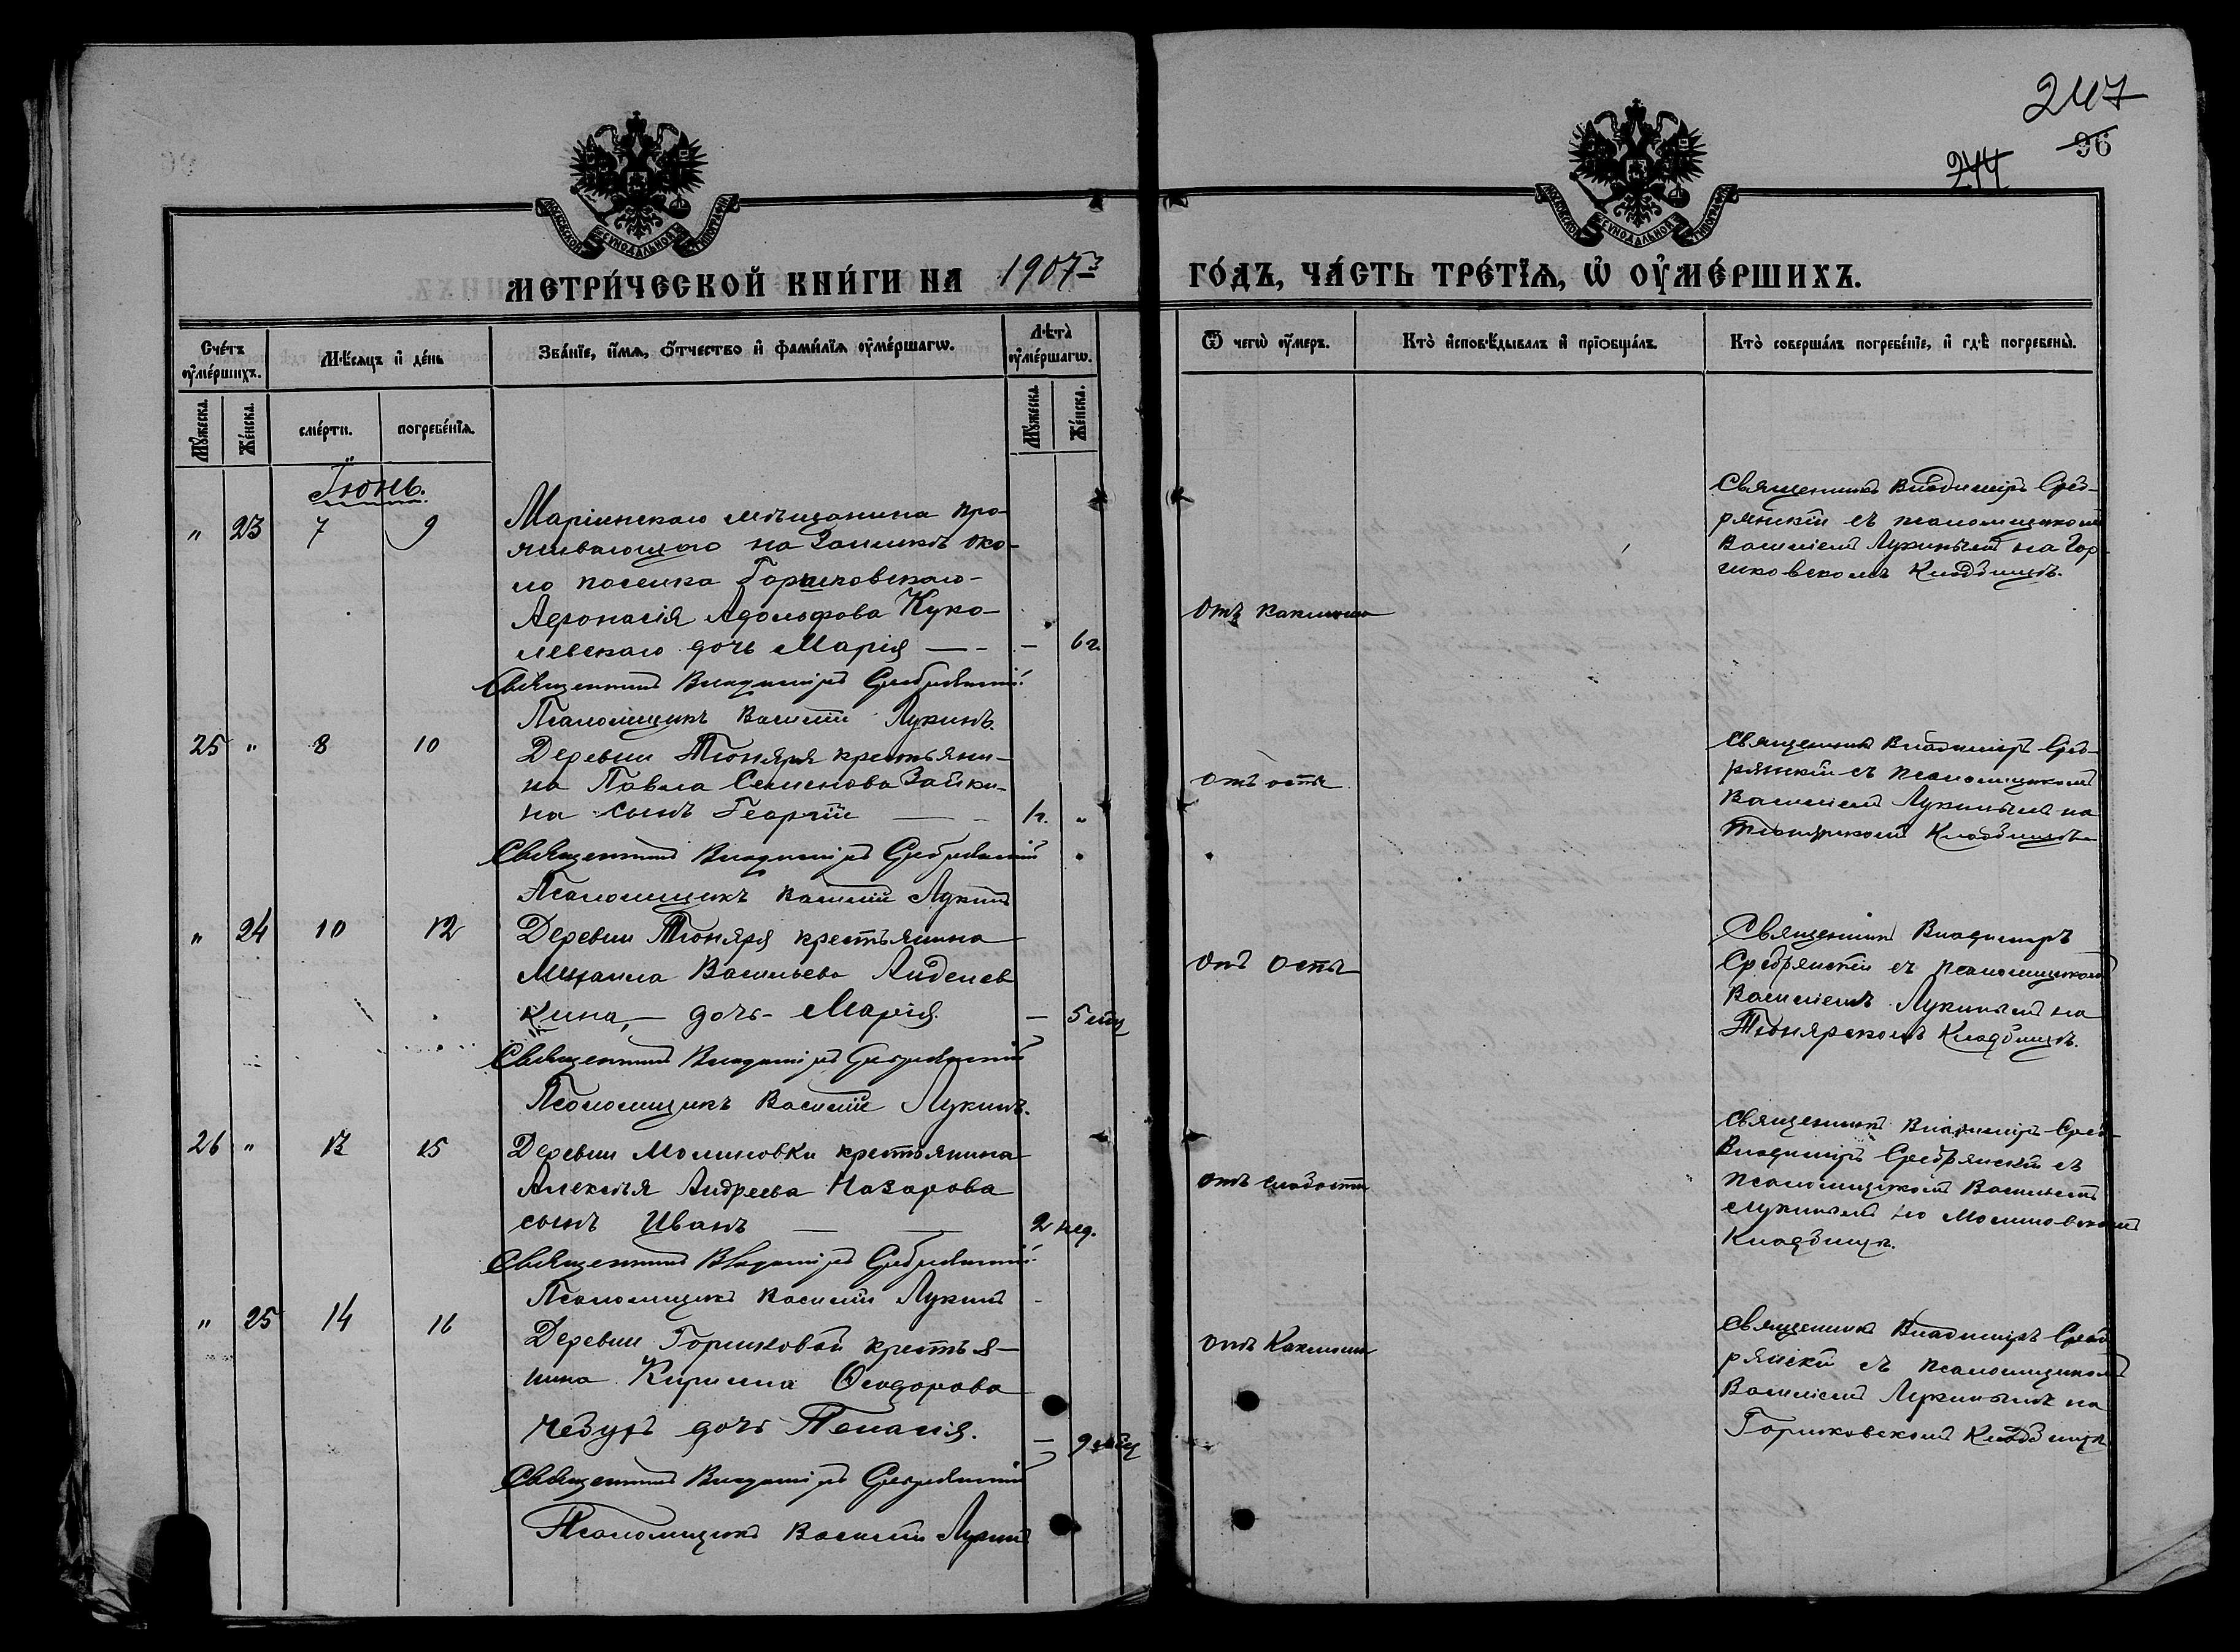 247
96
244
МОСКОВСКОЙ СѴНОДАЛЬНОЙ ТИПОГРАФІИ
МОСКОВСКОЙ СѴНОДАЛЬНОЙ ТИПОГРАФІИ
МЕТРИ́ЧЕСКОЙ КНИ́ГИ НА 1907 ГО́ДЪ, ЧА́СТЬ ТРЕ́ТЇѦ, Ѡ҆ ОУ҆МЕ́РШИХЪ.
Сче́тъ оу҆ме́ршихъ.
Мѣ́сяцъ и҆ де́нь
Зва́нїе, и҆́мѧ, ѻ҆́тчество и҆ фами́лїѧ оу҆ме́ршагѡ.
Лѣта̀ оу҆ме́ршагѡ.
Ѿ чегѡ̀ оу҆́меръ.
Кто̀ и҆сповѣ́дывалъ и҆ прїѻбща́лъ.
Кто̀ соверша́лъ погребе́нїе, и҆ гдѣ̀ погребены̀.
Мꙋ́жеска.
Же́нска.
сме́рти.
погребе́нїѧ.
Мꙋ́жеска.
Же́нска.
Іюнь.
" 23 7 9
Маріинскаго мѣщанина про-
живающаго на Заимкѣ око-
ло поселка Горшковскаго
Афонасія Адольфова Куко-
левскаго дочь Марія — - — 6 г.
Священникъ Владиміръ Сребрянскій
Псаломщикъ Василій Лукинъ.
Отъ коклюша
Священникъ Владиміръ Среб-
рянскій съ псаломщикомъ
Василіемъ Лукинымъ на Гор-
шковскомъ Кладбищѣ.
25 " 8 10
Деревни Тюняря крестьяни-
на Павла Семенова Зайки-
на сынъ Георгій — - 1г. "
Священникъ Владиміръ Сребрянскій
Псаломщикъ Василій Лукинъ
отъ оспы
Священникъ Владиміръ Среб-
рянскій съ псаломщикомъ
Василіемъ Лукинымъ на
Тюнярскомъ Кладбищѣ
" 24 10 12
Деревни Тюняря крестьянина
Михаила Васильева
кина, — дочь - Марія. — 5 мѣц
Священникъ Владиміръ Сребрянскій
Псаломщикъ Василій Лукинъ.
Отъ Оспы
Священникъ Владиміръ
Сребрянскій съ псаломщикомъ
Василіемъ Лукинымъ на
Тюнярскомъ Кладбищѣ.
26 " 13 15
Деревни Молиновки крестьянина
Алексѣя Андреева Назарова
сынъ Иванъ — — 2 нед.
Священникъ Владиміръ Сребрянскій
Псаломщикъ Василій Лукинъ
отъ слабости
Священникъ Владиміръ Среб-
Владиміръ Сребрянскій съ
псаломщикомъ Василіемъ
Лукинымъ на Молиновскомъ
Кладбищѣ.
" 25 14 16
Деревни Горшковой крестья-
нина Кирилла Ѳеодорова
Чебуръ дочь Пелагія. — 9 мѣц
Священникъ Владиміръ Сребрянскій
Псаломщикъ Василій Лукинъ
отъ Коклюша
Священникъ Владиміръ Среб
рянскій съ псаломщикомъ
Василіемъ Лукинымъ на
Горшковскомъ Кладбищѣ